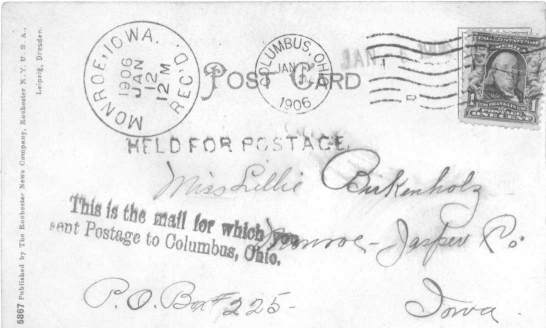 MONROE, IOWA. REC'D.
1906
JAN
12
12 M
COLUMBUS, OHIO
JAN
1906
JAN
POST CARD
HELD FOR POSTAGE
Miss Lillie Birkenholz
This is the mail for which you
sent Postage to Columbus, Ohio.
Monroe - Jasper Co
P.O. Box # 225 -
Iowa.
5867 Published by The Rochester News Company, Rochester N.Y. U.S.A.
Leipzig, Dresden.